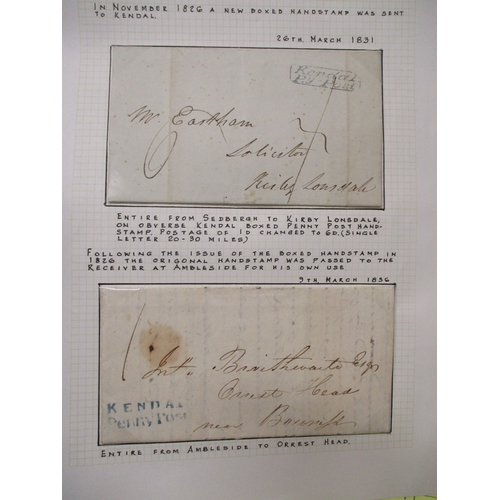 IN NOVEMBER 1826 A NEW BOXED HANDSTAMP WAS SENT
TO KENDAL.
26TH. MARCH 1831
Kendal
Py. Post
Mr. Eastham
Solicitor
Kirby Lonsdale
ENTIRE FROM SEDBERGH TO KIRBY LONSDALE,
ON OBVERSE KENDAL BOXED PENNY POST HAND-
STAMP. POSTAGE OF 1D CHANGED TO 6D. (SINGLE
LETTER 20-30 MILES)
FOLLOWING THE ISSUE OF THE BOXED HANDSTAMP IN
1826 THE ORIGONAL HANDSTAMP WAS PASSED TO THE
RECEIVER AT AMBLESIDE FOR HIS OWN USE
9TH. MARCH 1836
Braithwaite Esqr
Orrest Head
near
KENDAL
Penny Post
ENTIRE FROM AMBLESIDE TO ORREST HEAD.